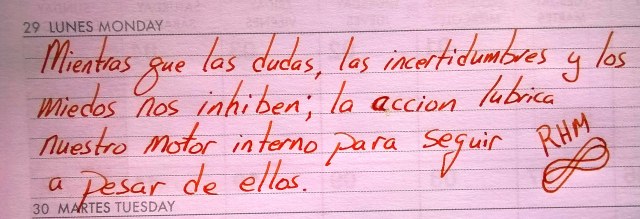 29 LUNES MONDAY
Mientras que las dudas, las incertidumbres y los
miedos nos inhiben; la accion lubrica
nuestro motor interno para seguir
RHM
a pesar de ellos.
30 MARTES TUESDAY